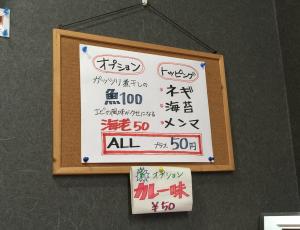 オプション
ガッツリ煮干しの
魚100
エビの風味がクセになる
海老50
トッピング
・ネギ
・海苔
・メンマ
ALL プラス50円
オプション
カレー味
¥50